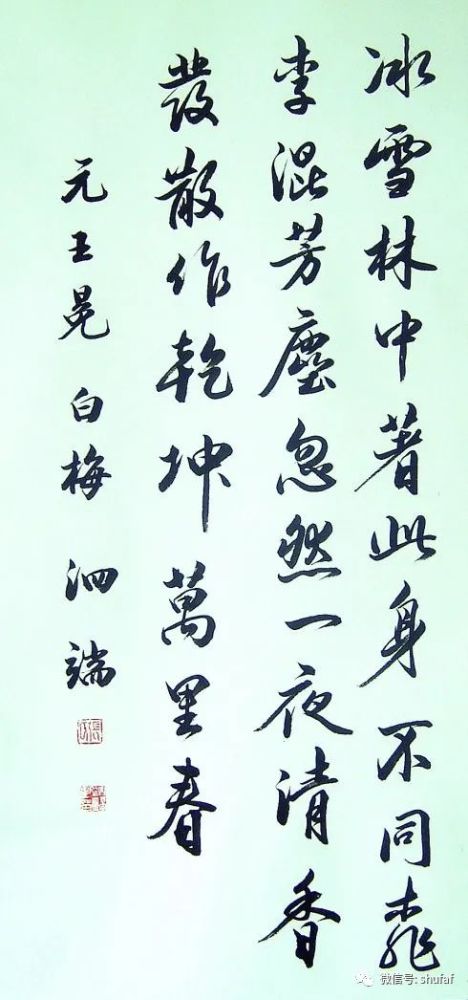 冰雪林中著此身不同桃
李混芳塵忽然一夜清香
發散作乾坤萬里春
元王冕 白梅 泗端
微信号: shufaf